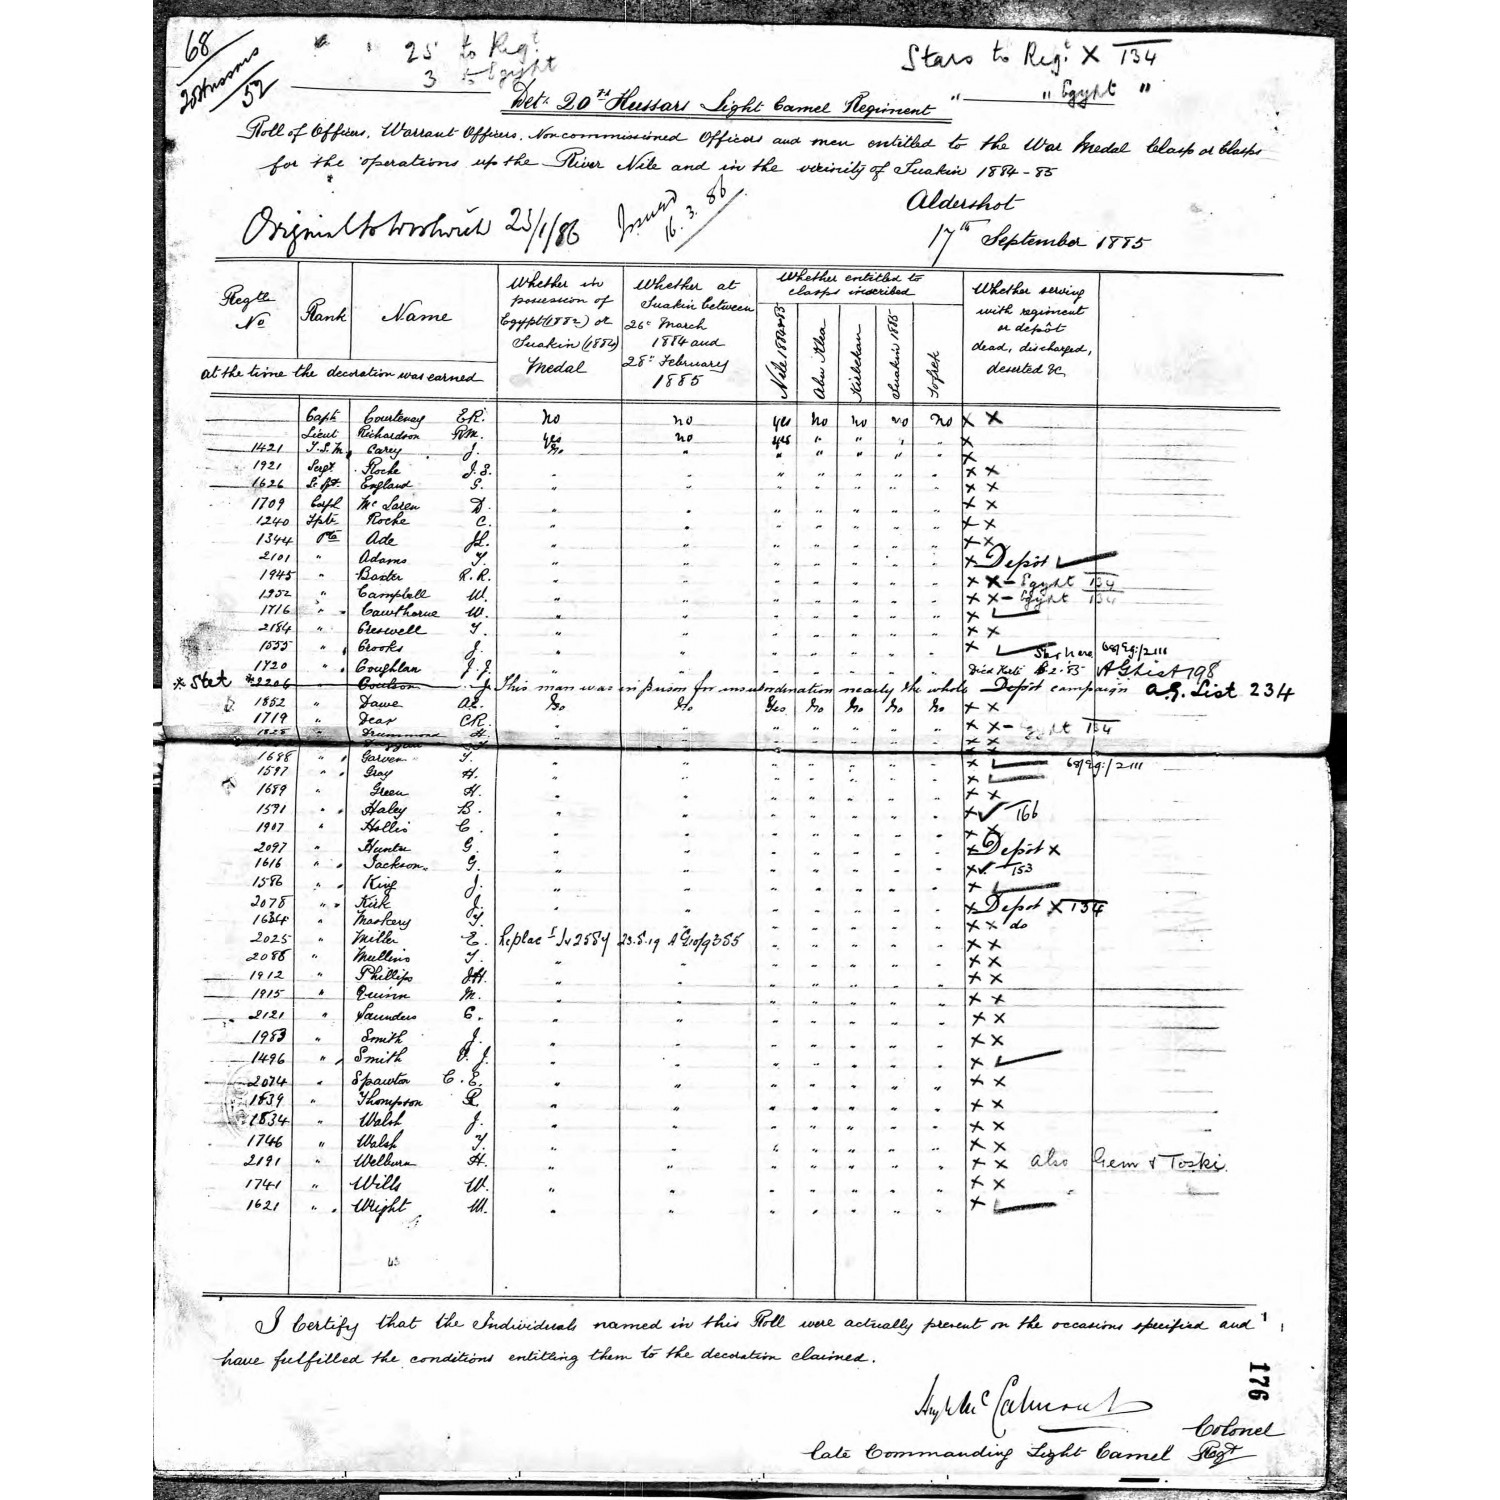 68
20 Hussars
52
25 to Regt.
3 to Egypt
Stars to Regt. X 134
" " Egypt "
Det. 20th Hussars Light Camel Regiment
Roll of Officers, Warrant Officers, Noncommissioned Officers and men entitled to the War Medal Clasp or Clasps
for the operations up the River Nile and in the vicinity of Suakin 1884-85
Original to Woolwich 23/1/86
Issued 16.3.86
Aldershot
17th September 1885
Regtl No
Rank
Name
at the time the decoration was earned
Whether in possession of Egypt (1882) or Suakin (1884) Medal
Whether at Suakin between 26th March 1884 and 28th February 1885
Whether entitled to clasps inscribed
Nile 1884-85
Abu Klea
Kirbekan
Suakin 1885
Tofrek
Whether serving with regiment or depôt dead, discharged, deserted &c
Capt Courtenay E.R. No no yes no no no no X X
Lieut Richardson R.M. Yes no yes " " " " X
1421 T.S.M. Carey J. No " " " " " " X
1921 Sergt. Roche J.S. " " " " " " " X X
1626 England G. " " " " " " " X X
1709 Corpl McLaren D. " " " " " " " X X
1240 Roche C. " " " " " " " X X
1344 Pte Ade " " " " " " " X X
2101 " Adams T. " " " " " " " X Depôt ✓
1945 " Baxter R.R. " " " " " " " X X - Egypt 134
1952 " Campbell W. " " " " " " " X X - Egypt 134
1716 " Cawthorne W. " " " " " " " X ✓
2184 " Creswell T. " " " " " " " X X
1555 " Crooks J. " " " " " " " X ✓ Star here 68/Eg:/2111
1720 " Coughlan J.J. " " " " " " " Died Korti 8.2.85 AG List 198
* Stet *2206 Coulson J. This man was in prison for insubordination nearly the whole Depôt campaign A.G. List 234
1852 " Dawe A.E. No No Yes No No No No X X
1719 " Dear C.R. " " " " " " " X X - Egypt 134
Drummond H. " " " " " " " X X
1698 " Garven T. " " " " " " " X ✓ 68/Eg:/2111
1597 " Gray H. " " " " " " " X ✓
1689 " Green H. " " " " " " " X X
1591 " Haley B. " " " " " " " X ✓ 166
1907 " Hollis C. " " " " " " " X X
2097 " Hunter G. " " " " " " " X Depôt X
1616 " Jackson G. " " " " " " " X ✓ 153
1586 " King J. " " " " " " " X ✓
2078 " Kirk J. " " " " " " " X Depôt X 134
1634 " Maskery T. " " " " " " " X X do
2025 " Miller E. Replact. Iv 2584 23.8.19 " " " " " X X
2088 " Mullins T. " " " " " " " X X
1912 " Phillips J.H. " " " " " " " X X
1915 " Quinn M. " " " " " " " X X
2121 " Saunders C. " " " " " " " X X
1983 " Smith J. " " " " " " " X X
1496 " Smith J. " " " " " " " X ✓
2074 " Spawton C.E. " " " " " " " X X
1839 " Thompson R. " " " " " " " X X
1834 " Walsh J. " " " " " " " X X
1746 " Walsh T. " " " " " " " X X
2191 " Welburn H. " " " " " " " X X also Gem & Toski
1741 " Wills W. " " " " " " " X X
1621 " Wright W. " " " " " " " X ✓
43
I Certify that the Individuals named in this Roll were actually present on the occasions specified and
have fulfilled the conditions entitling them to the decoration claimed.
176
Hugh McCalmont
Colonel
Late Commanding Light Camel Regt